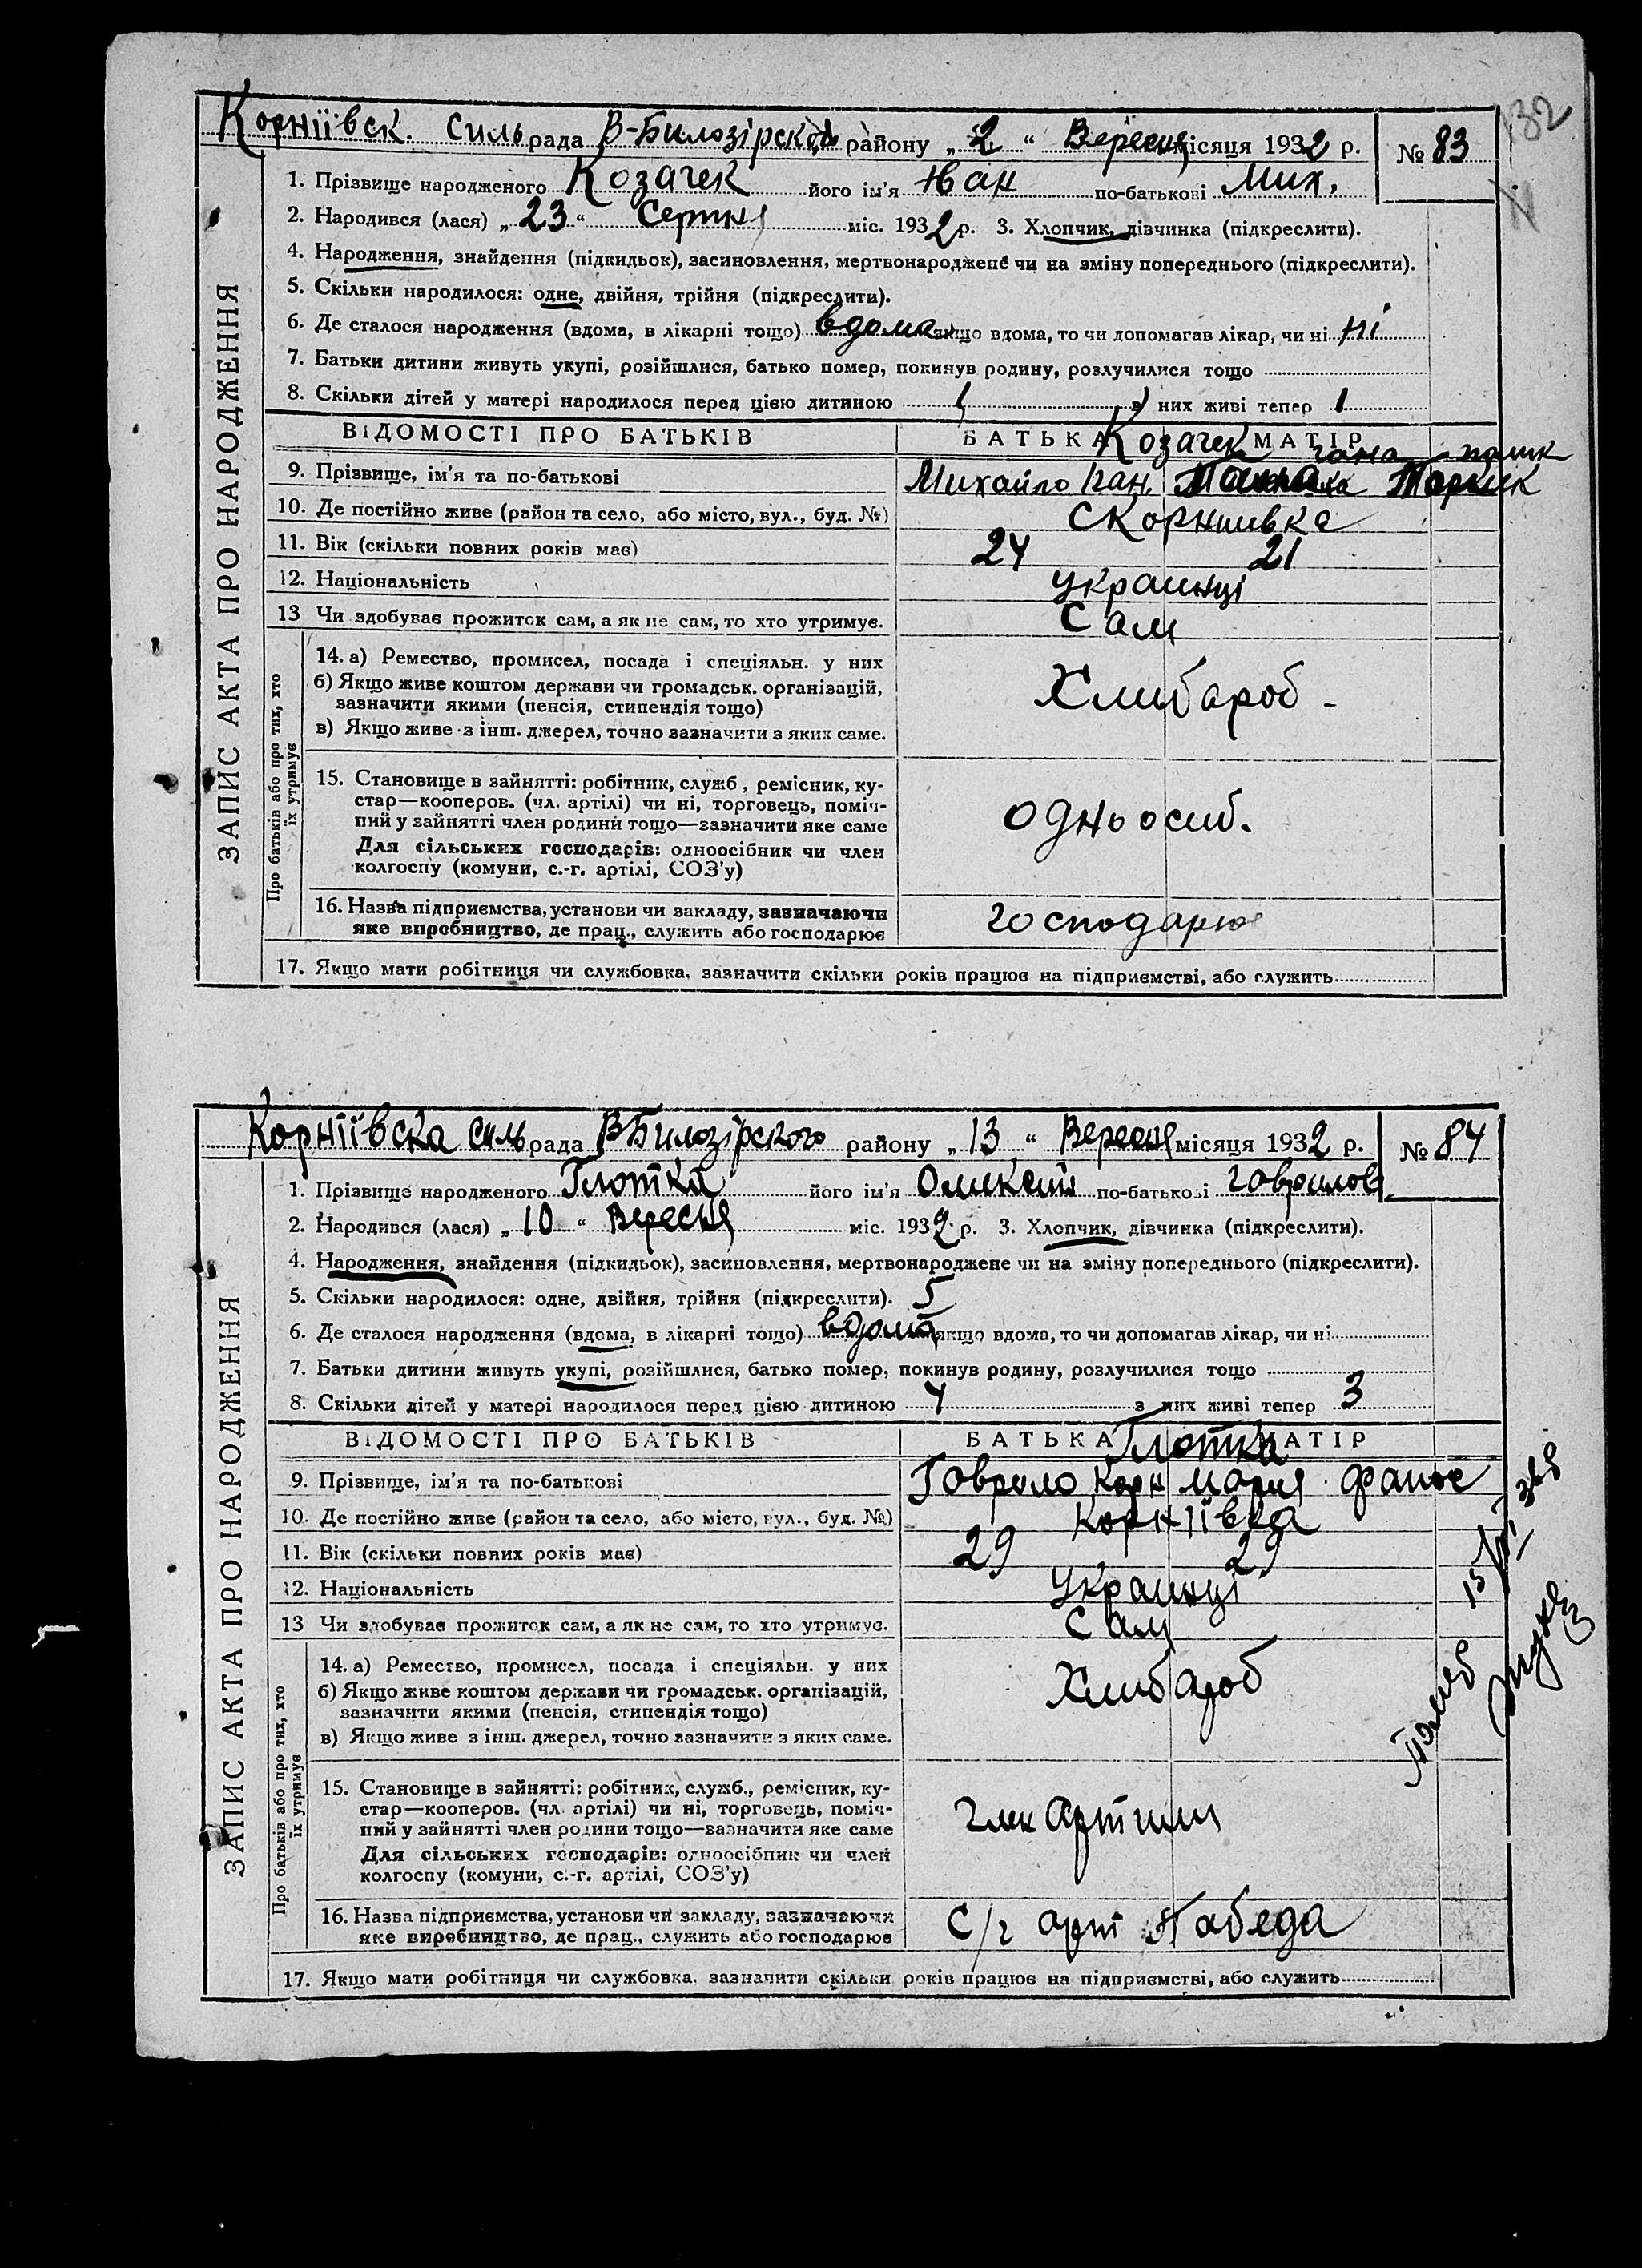 132
Корніївск. силь рада В-Білозірской району „ 2 “ Вересня місяця 1932 р. № 83
ЗАПИС АКТА ПРО НАРОДЖЕННЯ
1. Прізвище народженого Козачек його ім'я Иван по-батькові Мих.
2. Народився (лася) „ 23 “ Серпня міс. 1932 р. 3. Хлопчик, дівчинка (підкреслити).
4. Народження, знайдення (підкидьок), засиновлення, мертвонароджене чи на зміну попереднього (підкреслити).
5. Скільки народилося: одне, двійня, трійня (підкреслити).
6. Де сталося народження (вдома, в лікарні тощо) вдома якщо вдома, то чи допомагав лікар, чи ні ні
7. Батьки дитини живуть укупі, розійшлися, батько помер, покинув родину, розлучилися тощо
8. Скільки дітей у матері народилося перед цією дитиною 1 з них живі тепер 1
ВІДОМОСТІ ПРО БАТЬКІВ БАТЬКА Козачек МАТІР
9. Прізвище, ім'я та по-батькові Михайло Іван.
10. Де постійно живе (район та село, або місто, вул., буд. №) с Корниивка
11. Вік (скільки повних років має) 24 21
12. Національність украинці
13 Чи здобуває прожиток сам, а як не сам, то хто утримує. Сам
Про батьків або про тих, хто їх утримує
14. а) Ремество, промисел, посада і спеціяльн. у них
б) Якщо живе коштом держави чи громадськ. організацій,
зазначити якими (пенсія, стипендія тощо) Хлибароб -
в) Якщо живе з інш. джерел, точно зазначити з яких саме.
15. Становище в зайнятті: робітник, служб., ремісник, ку-
стар—кооперов. (чл. артілі) чи ні, торговець, поміч-
ний у зайнятті член родини тощо—зазначити яке саме одноосиб.
Для сільських господарів: одноосібник чи член
колгоспу (комуни, с.-г. артілі, СОЗ'у)
16. Назва підприємства, установи чи закладу, зазначаючи
яке виробництво, де прац., служить або господарює господарює
17. Якщо мати робітниця чи службовка, зазначити скільки років працює на підприємстві, або служить
Корніївска силь рада В Білозірского району „ 13 “ Вересня місяця 1932 р. № 84
ЗАПИС АКТА ПРО НАРОДЖЕННЯ
1. Прізвище народженого Глотка його ім'я Олексий по-батькові Гаврилов
2. Народився (лася) „ 10 “ Вересня міс. 1932 р. 3. Хлопчик, дівчинка (підкреслити).
4. Народження, знайдення (підкидьок), засиновлення, мертвонароджене чи на зміну попереднього (підкреслити).
5. Скільки народилося: одне, двійня, трійня (підкреслити). 5
6. Де сталося народження (вдома, в лікарні тощо) вдома якщо вдома, то чи допомагав лікар, чи ні
7. Батьки дитини живуть укупі, розійшлися, батько помер, покинув родину, розлучилися тощо
8. Скільки дітей у матері народилося перед цією дитиною 4 з них живі тепер 3
ВІДОМОСТІ ПРО БАТЬКІВ БАТЬКА Глотка МАТІР
9. Прізвище, ім'я та по-батькові Гаврило Корн Мария
10. Де постійно живе (район та село, або місто, вул., буд. №) Корніївка
11. Вік (скільки повних років має) 29 29
12. Національність украинці
13 Чи здобуває прожиток сам, а як не сам, то хто утримує. Сам
Про батьків або про тих, хто їх утримує
14. а) Ремество, промисел, посада і спеціяльн. у них
б) Якщо живе коштом держави чи громадськ. організацій,
зазначити якими (пенсія, стипендія тощо) Хлибароб
в) Якщо живе з інш. джерел, точно зазначити з яких саме.
15. Становище в зайнятті: робітник, служб., ремісник, ку-
стар—кооперов. (чл. артілі) чи ні, торговець, поміч-
ний у зайнятті член родини тощо—зазначити яке саме член артили
Для сільських господарів: одноосібник чи член
колгоспу (комуни, с.-г. артілі, СОЗ'у)
16. Назва підприємства, установи чи закладу, зазначаючи
яке виробництво, де прац., служить або господарює С/г арт Пабеда
17. Якщо мати робітниця чи службовка, зазначити скільки років працює на підприємстві, або служить